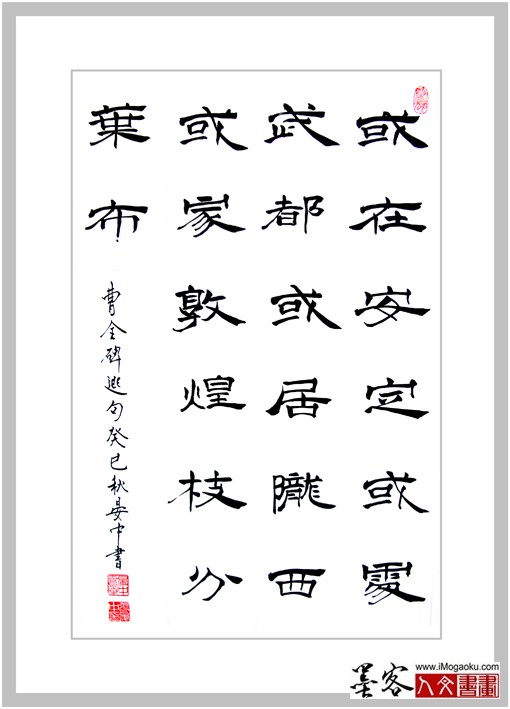 或在安定或處
武都或居隴西
或家敦煌枝分
葉布
曹全碑選句癸巳秋晏中書
墨客
www.iMogaoku.com
人文書畫